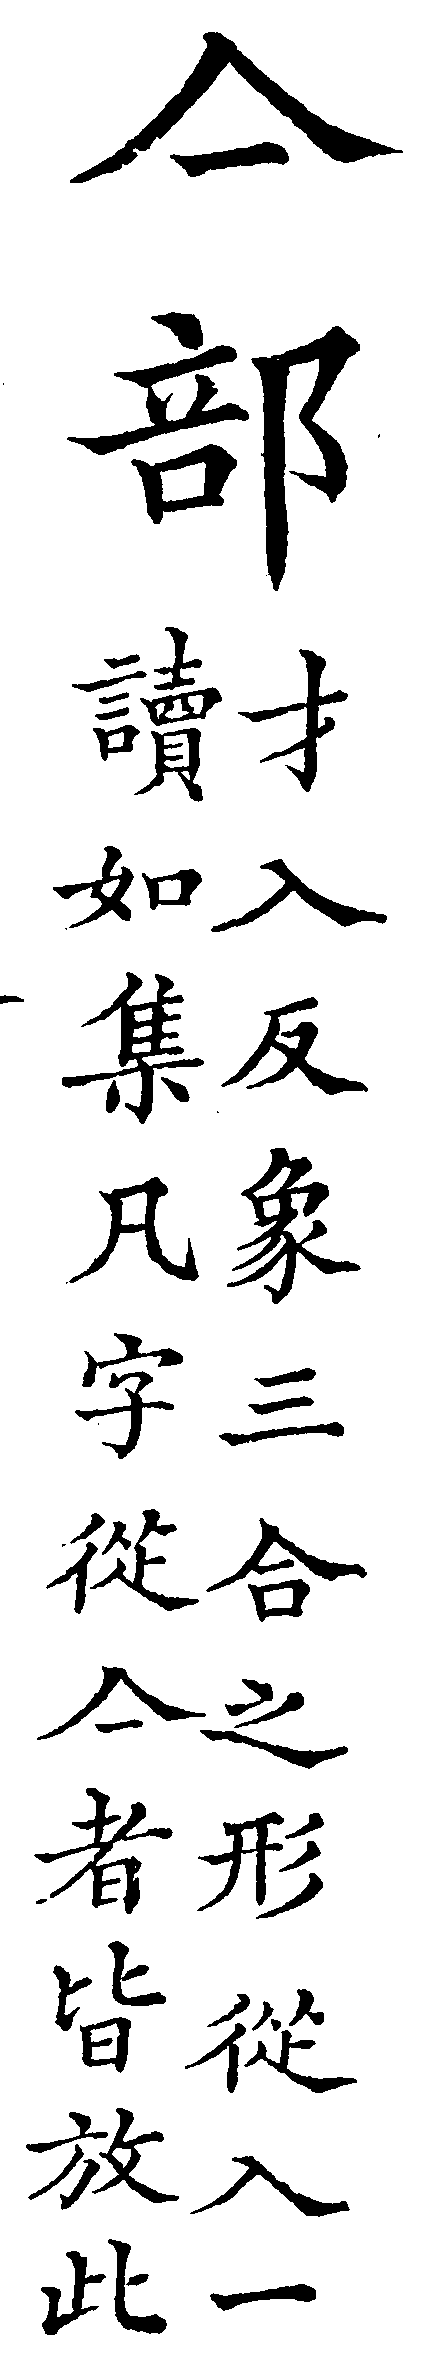 亼部
才入反象三合之形從入一
讀如集凡字從亼者皆放此